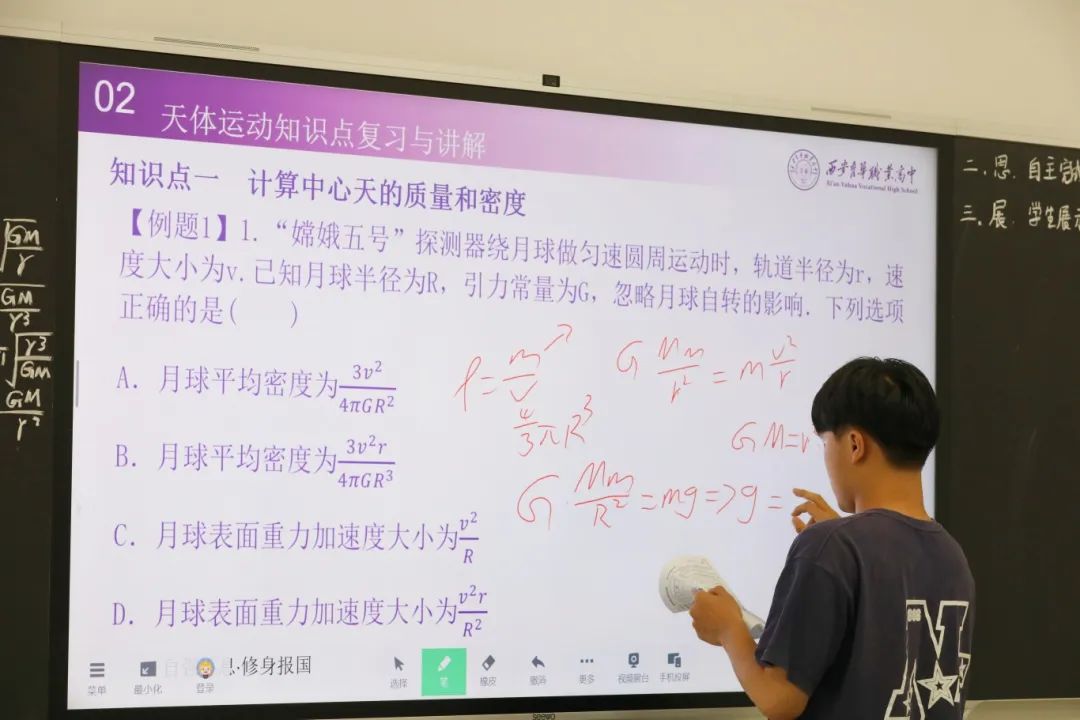 02 天体运动知识点复习与讲解
西安育华职业高中
Xi'an Yuhua Vocational High School
知识点一 计算中心天的质量和密度
【例题1】1.“嫦娥五号”探测器绕月球做匀速圆周运动时，轨道半径为r，速
度大小为v.已知月球半径为R，引力常量为G，忽略月球自转的影响. 下列选项
正确的是( )
A. 月球平均密度为3v²/4πGR²
B. 月球平均密度为3v²r/4πGR³
C. 月球表面重力加速度大小为v²/R
D. 月球表面重力加速度大小为v²r/R²
G Mm/r² = m v²/r
4/3 πR³
GM=
G·Mm/R² = mg => g =
√GM/r
GM/r³
√r³/GM
GM/r²
二、思. 自主
三、展. 学生展
修身报国
菜单 最小化 登录 选择 笔 橡皮 撤消 更多 视频展台 手机投屏
seewo